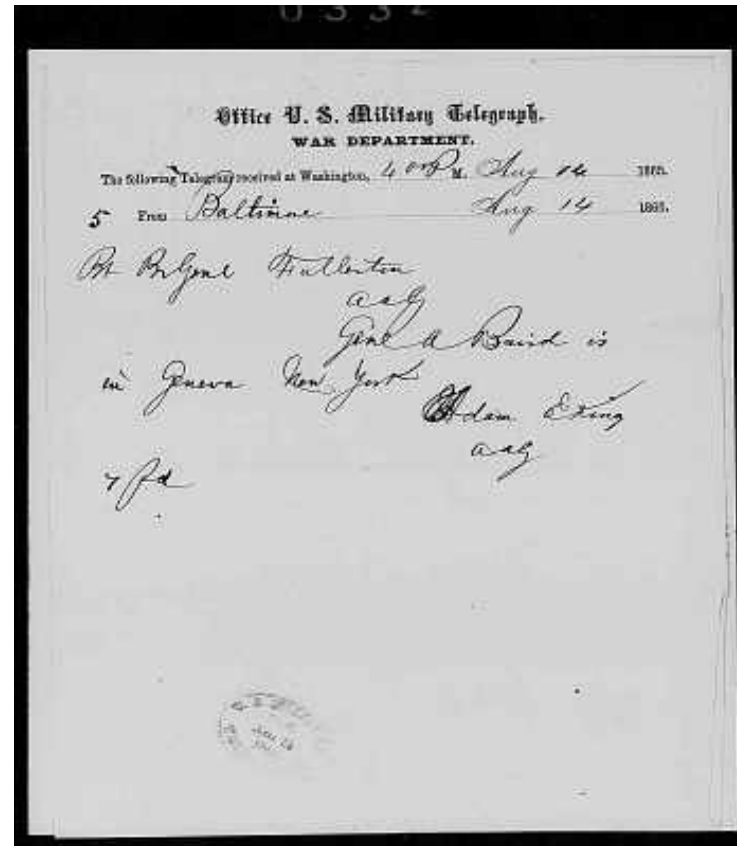 Office U. S. Military Telegraph,
WAR DEPARTMENT.
The following Telegram received at Washington, 4 00 P M. Aug 14 1865.
5 From Baltimore Aug 14 1865.
Bt Br Genl Fullerton
a a G
Genl A Baird is
in Geneva New York
Adam
a a G
7 Pd